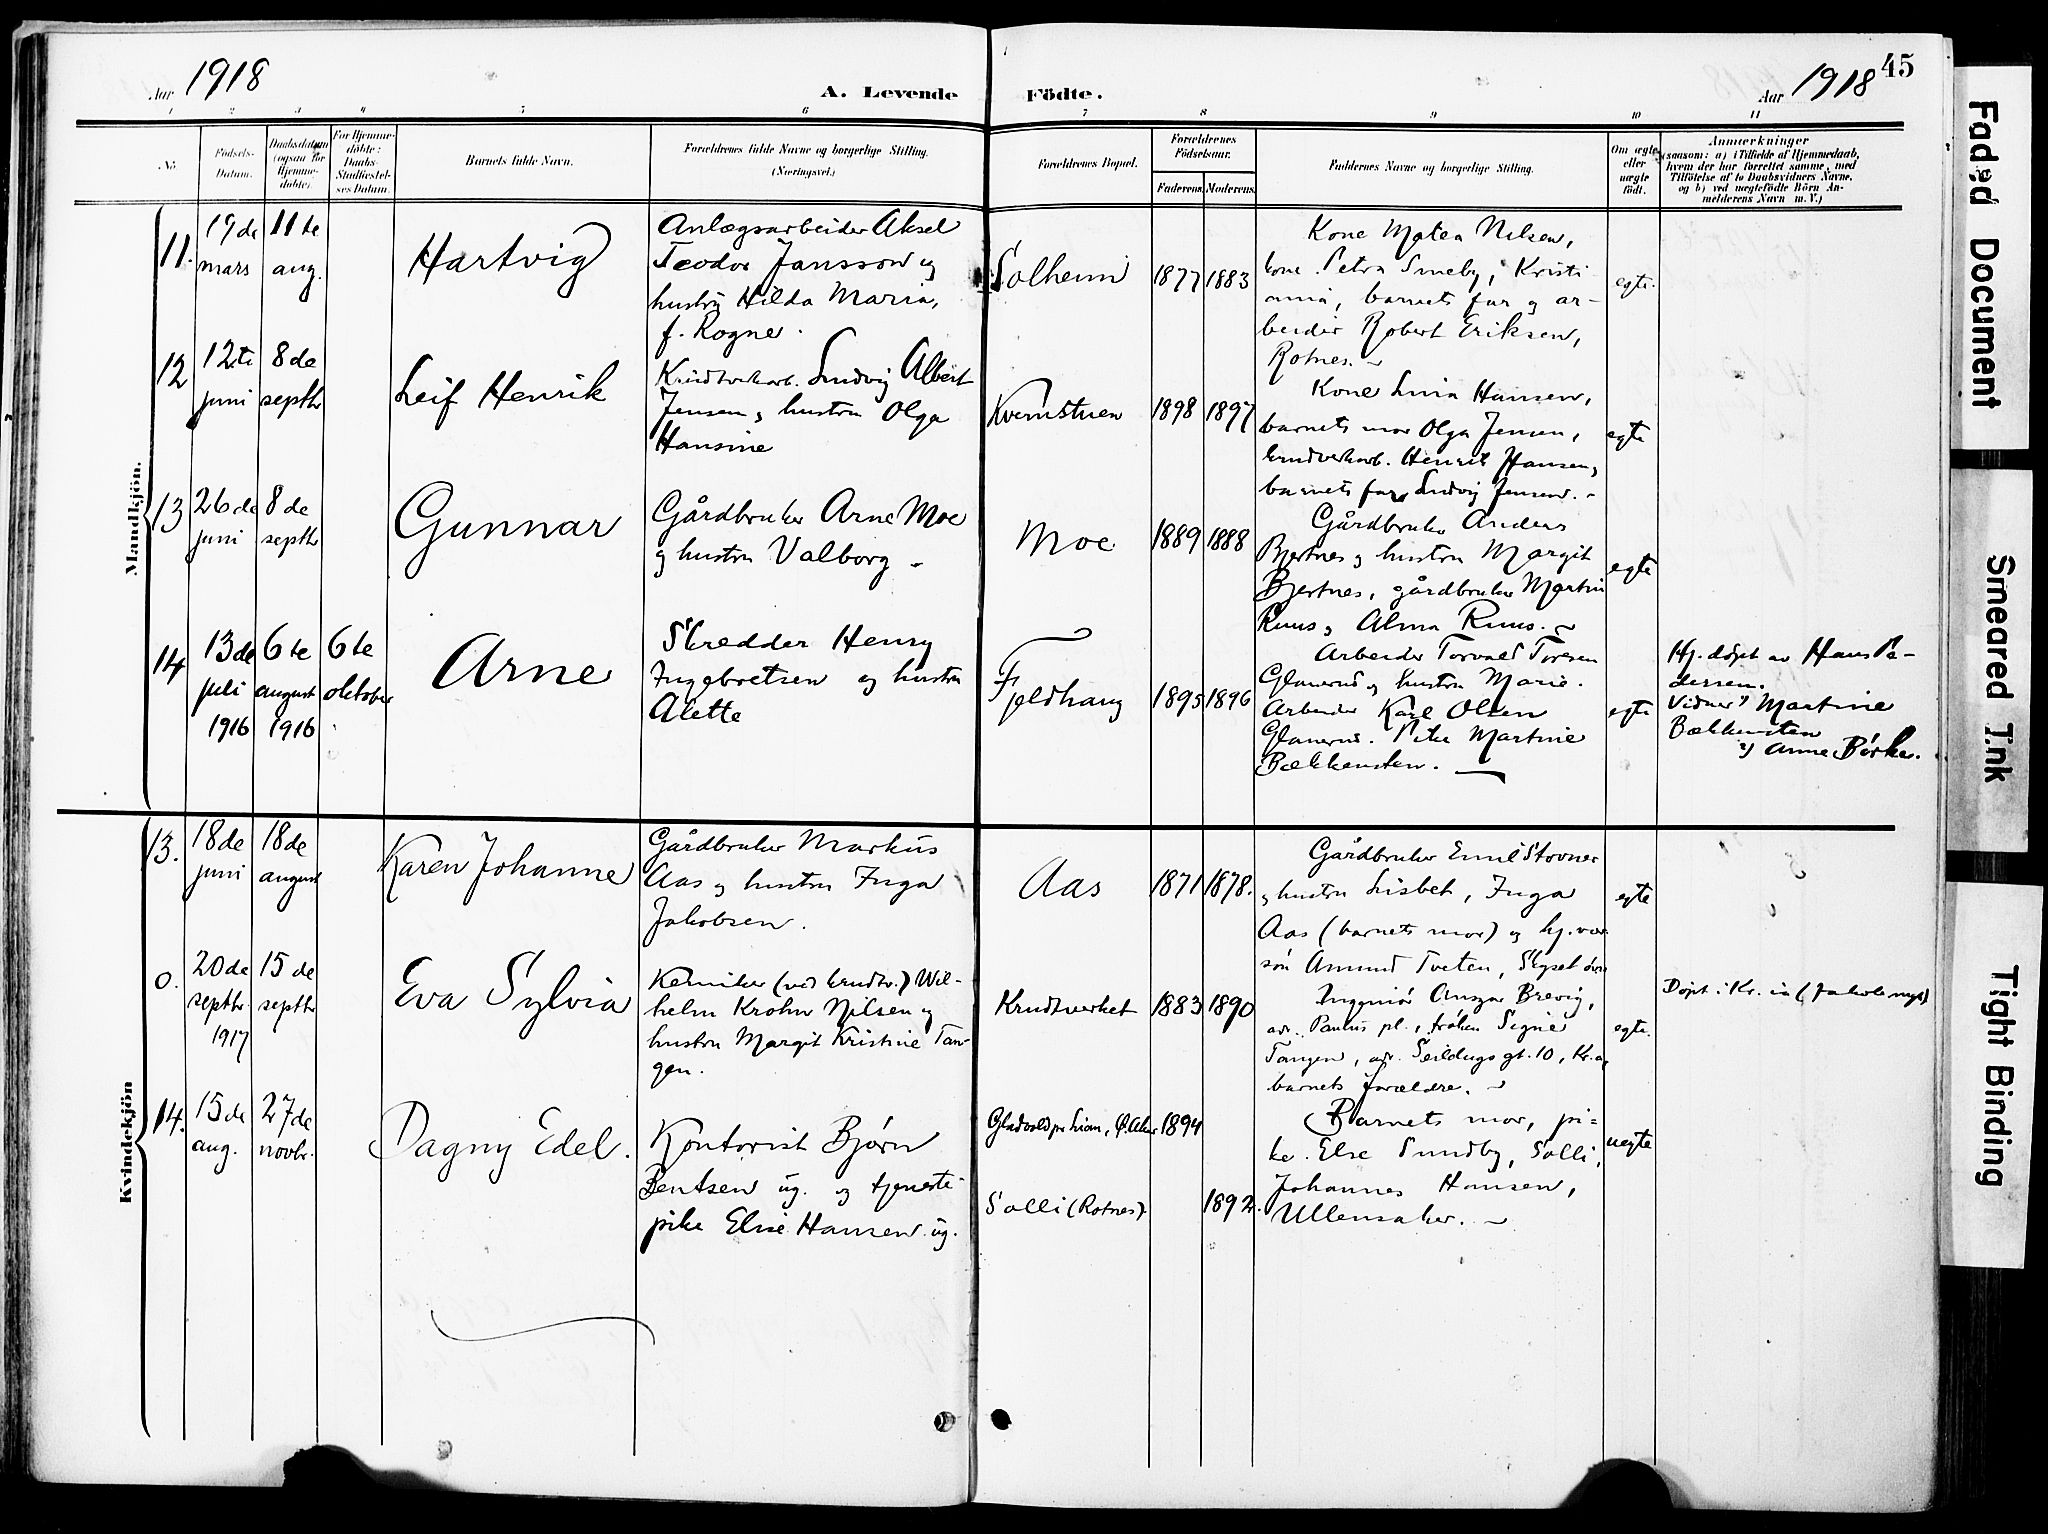 Aar 1918
A. Levende Födte.
Aar 1918 45
1 2 3 4 5 6 7 8 9 10 11
No.
Födsels-
Datum.
Daabsdatum
(ogsaa for
Hjemme-
döbte).
For Hjemme-
döbte:
Daabs-
Stadfæstel-
ses Datum.
Barnets fulde Navn.
Forældrenes fulde Navne og borgerlige Stilling.
(Næringsvei.)
Forældrenes Bopæl.
Forældrenes
Födselsaar.
Faderens. Moderens.
Faddernes Navne og borgerlige Stilling.
Om ægte
eller
uægte
födt.
Anmærkninger
(saasom: a) i Tilfælde af Hjemmedaab,
hvem der har forrettet samme, med
Tilföielse af to Daabsvidners Navne,
og b) ved uægtefödte Börn An-
melderens Navn m. V.)
Mandkjön.
11.
19de
mars
11te
aug.
Hartvig
Anlægsarbeider Aksel
Teodor Jansson og
hustru Hilda Maria,
f. Rogne.
Solheim
1877 1883
Kone Matea Nilsen,
kone Petra Smeby, Kristi-
ania, barnets far og ar-
beider Robert Eriksen,
Rotnes.
egte.
12
12te
juni
8de
septbr
Leif Henrik
Krudtverkarb. Ludvig Albert
Jensen og hustru Olga
Hansine
Kvernstuen
1898 1897
Kone Lina Hansen,
barnets mor Olga Jensen,
krudtverkarb. Henrik Hansen,
barnets far Ludvig Jensen.
egte
13
26de
juni
8de
septbr
Gunnar
Gårdbruker Arne Moe
og hustru Valborg
Moe
1889 1888
Gårdbruker Anders
Bjertnes og hustru Margit
Bjertnes, gårdbruker Martin
Ruus og Alma Ruus.
egte
14
13de
juli
1916
6te
august
1916
6te
oktober
Arne
Skredder Henry
Ingebretsen og hustru
Alette
Fjeldhaug
1895 1896
Arbeider Torvald Toresen
Glanerud og hustru Marie.
Arbeider Karl Olsen
Glanerud. Pike Martine
Bækkensten.
egte
Hj. døpt av Hans Pe-
dersen.
Vidner 1) Martine
Bækkensten
2) Anne Børke.
Kvindekjön
13.
18de
juni
18de
august
Karen Johanne
Gårdbruker Markus
Aas og hustru Inga
Jakobsen.
Aas
1871 1878.
Gårdbruker Emil Stovner
og hustru Lisbet, Inga
Aas (barnets mor) og hj. vær
søn Amund Tveten, Skyset
egte
0.
20de
septbr.
1917
15de
septbr
Eva Sylvia
Kemiker (ved krudtv.) Wil-
helm Krohn Nilsen og
hustru Margit Kristine Tan-
gen.
Krudtverket
1883 1890
Ingeniør Ansgar Brevig,
adr. Paulus pl., frøken Signe
Tangen, adr. Seildugs gt. 10, Kr.a,
barnets forældre.
egte.
Døpt i Kr.ia (Jakob
14.
15de
aug.
27de
novbr.
Dagny Edel.
Kontorist Bjørn
Bentsen ug. og tjeneste-
pike Elise Hansen ug.
Gladvold pr Lian, Ø. Aker
1894
Solli (Rotnes)
1892.
Barnets mor, pi-
ke. Else Sundby, Solli,
Johannes Hansen,
Ullensaker.
uegte
Faded Document
Smeared Ink
Tight Binding